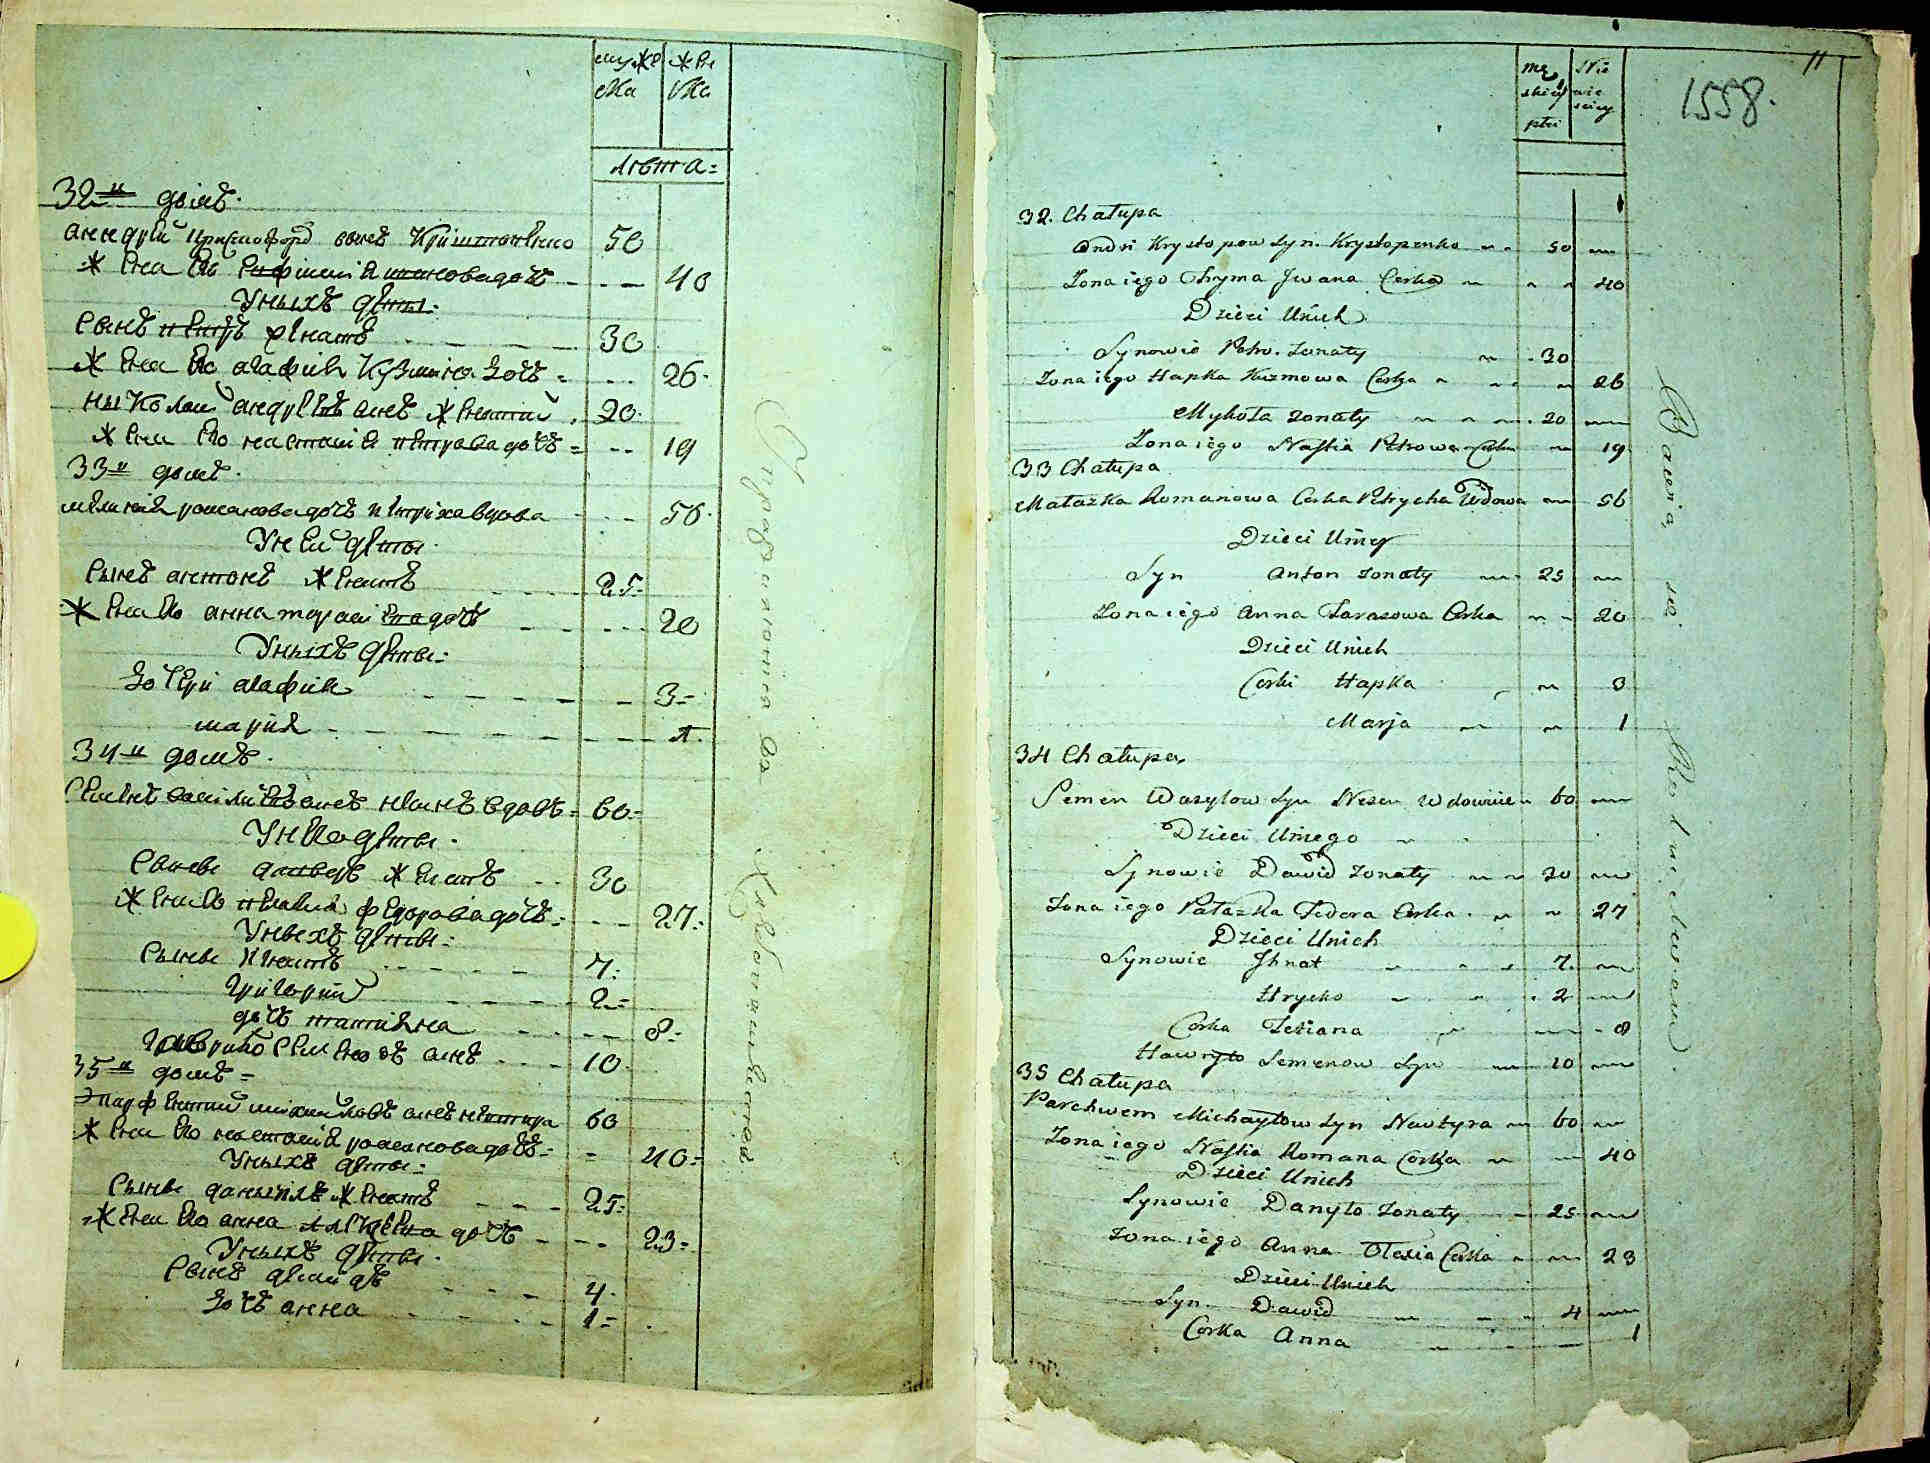 муже ска
жен ска
лѣта =
32й домъ.
андрѣй христофоръ сынъ Криштопенко 50
жена его Евфимия иванова дочь 40
У нихъ дѣти.
сынъ петръ женатъ 30
жена его агафия Кузмина дочь = 26.
николай андреевъ сынъ женатий 20.
жена его настасия петрова дочь = 19
33й домъ.
мелания романова дочь петриха вдова 56.
У ней дѣти.
сынъ антонъ женатъ 25.
жена его анна тараси ева дочь 20
У нихъ дѣти =
дочери агафия 3 =
мария 1.
34й домъ.
Семенъ василиевъ сынъ несенъ вдовъ = 60 =
У него дѣти.
сыны давидъ женатъ 30
жена его пелагия федорова дочь = 27 =
У нихъ дѣти =
сыны игнатъ 7 =
григорий 2 =
дочь татияна 8 =
гаврило семеновъ сынъ 10
35й домъ =
Парфентий михайловъ сынъ невтира 60
жена его настасия романова дочь = 40 =
У нихъ дѣти =
сыны данылъ женатъ 25 =
жена его анна алексѣева дочь 23 =
У нихъ дѣти.
сынъ давидъ 4.
дочь анна 1 =
męskiey płci
Nie wie sciey
11
1558.
32. Chałupa
Ondri Krystopow Syn. Krystopenko 50
Zona iego Chyma Jwana Corka 40
Dzieci Unich
Synowie Petro. Zonaty 30
Zona iego Hapka Kuzmowa Corka 26
Mykoła zonaty 20
Zona iego Nastia Petrowa Corka 19
33 Chałupa
Małaszka Romanowa Corka Petrycha Wdowa 56
Dzieci Uniey
Syn Anton zonaty 25
Zona iego Anna Tarasowa Corka 20
Dzieci Unich
Corki Hapka 3
Marja 1
34 Chałupa
Semen Wasylow Syn Nesen Wdowiec 60
Dzieci Uniego
Synowie Dawid zonaty 30
Zona iego Pałazka Fedora Corka 27
Dzieci Unich
Synowie Jhnat 7.
Hrycko 2
Corka Tetiana 8
Hawryło Semenow Syn 10
35 Chałupa
Parchwem Michayłow Syn Nawtyra 60
Zona iego Nastia Romana Corka 40
Dzieci Unich
Synowie Danyło Zonaty 25
Zona iego Anna Olexia Corka 23
Dzieci Unich
Syn. Dawid 4
Corka Anna 1